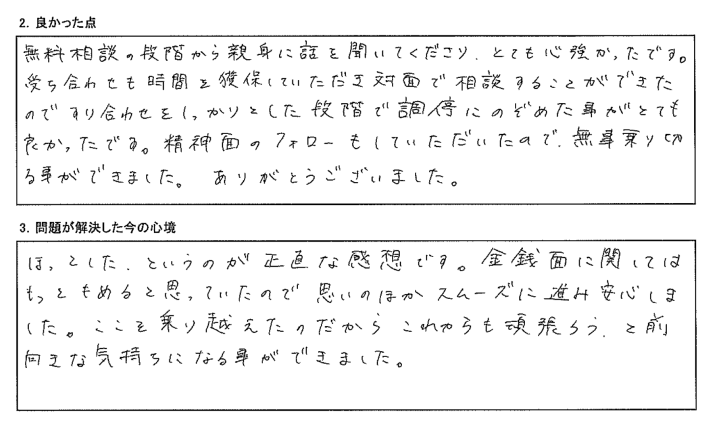 2. 良かった点
無料相談の段階から親身に話を聞いてくださり、とても心強かったです。
受ち合わせも時間を獲保していただき対面で相談することができた
のですり合わせをしっかりとした段階で調停にのぞめた事がとても
良かったです。精神面のフォローもしていただいたので、無事乗り切
る事ができました。 ありがとうございました。
3. 問題が解決した今の心境
ほっとした、というのが正直な感想です。金銭面に関しては
もっともめると思っていたので思いのほかスムーズに進み安心しま
した。ここを乗り越えたのだからこれからも頑張ろう、と前
向きな気持ちになる事ができました。